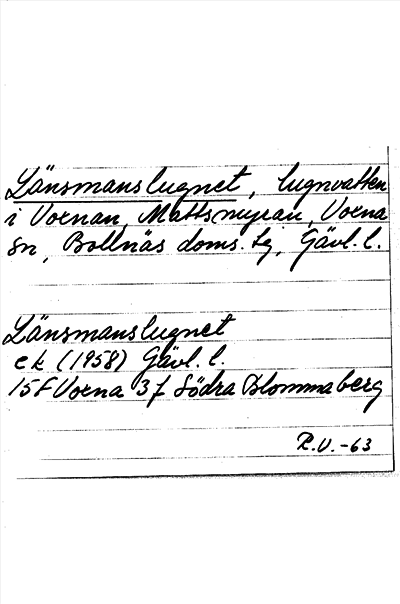 Länsmanslugnet, lugnvatten
i Voxnan, Mattsmyran, Voxna
sn, Bollnäs doms. tg, Gävl. l.
Länsmanslugnet
ek (1958) Gävl. l.
15F Voxna 3f Södra Blommaberg
R.U. -63